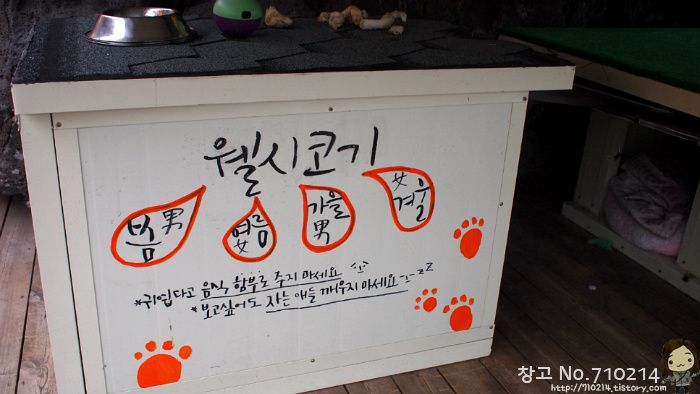 웰시코기
봄 男
여름 女
가을 男
겨울 女
*귀엽다고 음식 함부로 주지 마세요
*보고싶어도 자는 애들 깨우지 마세요 zzZ
창고 No.710214
http://710214.tistory.com